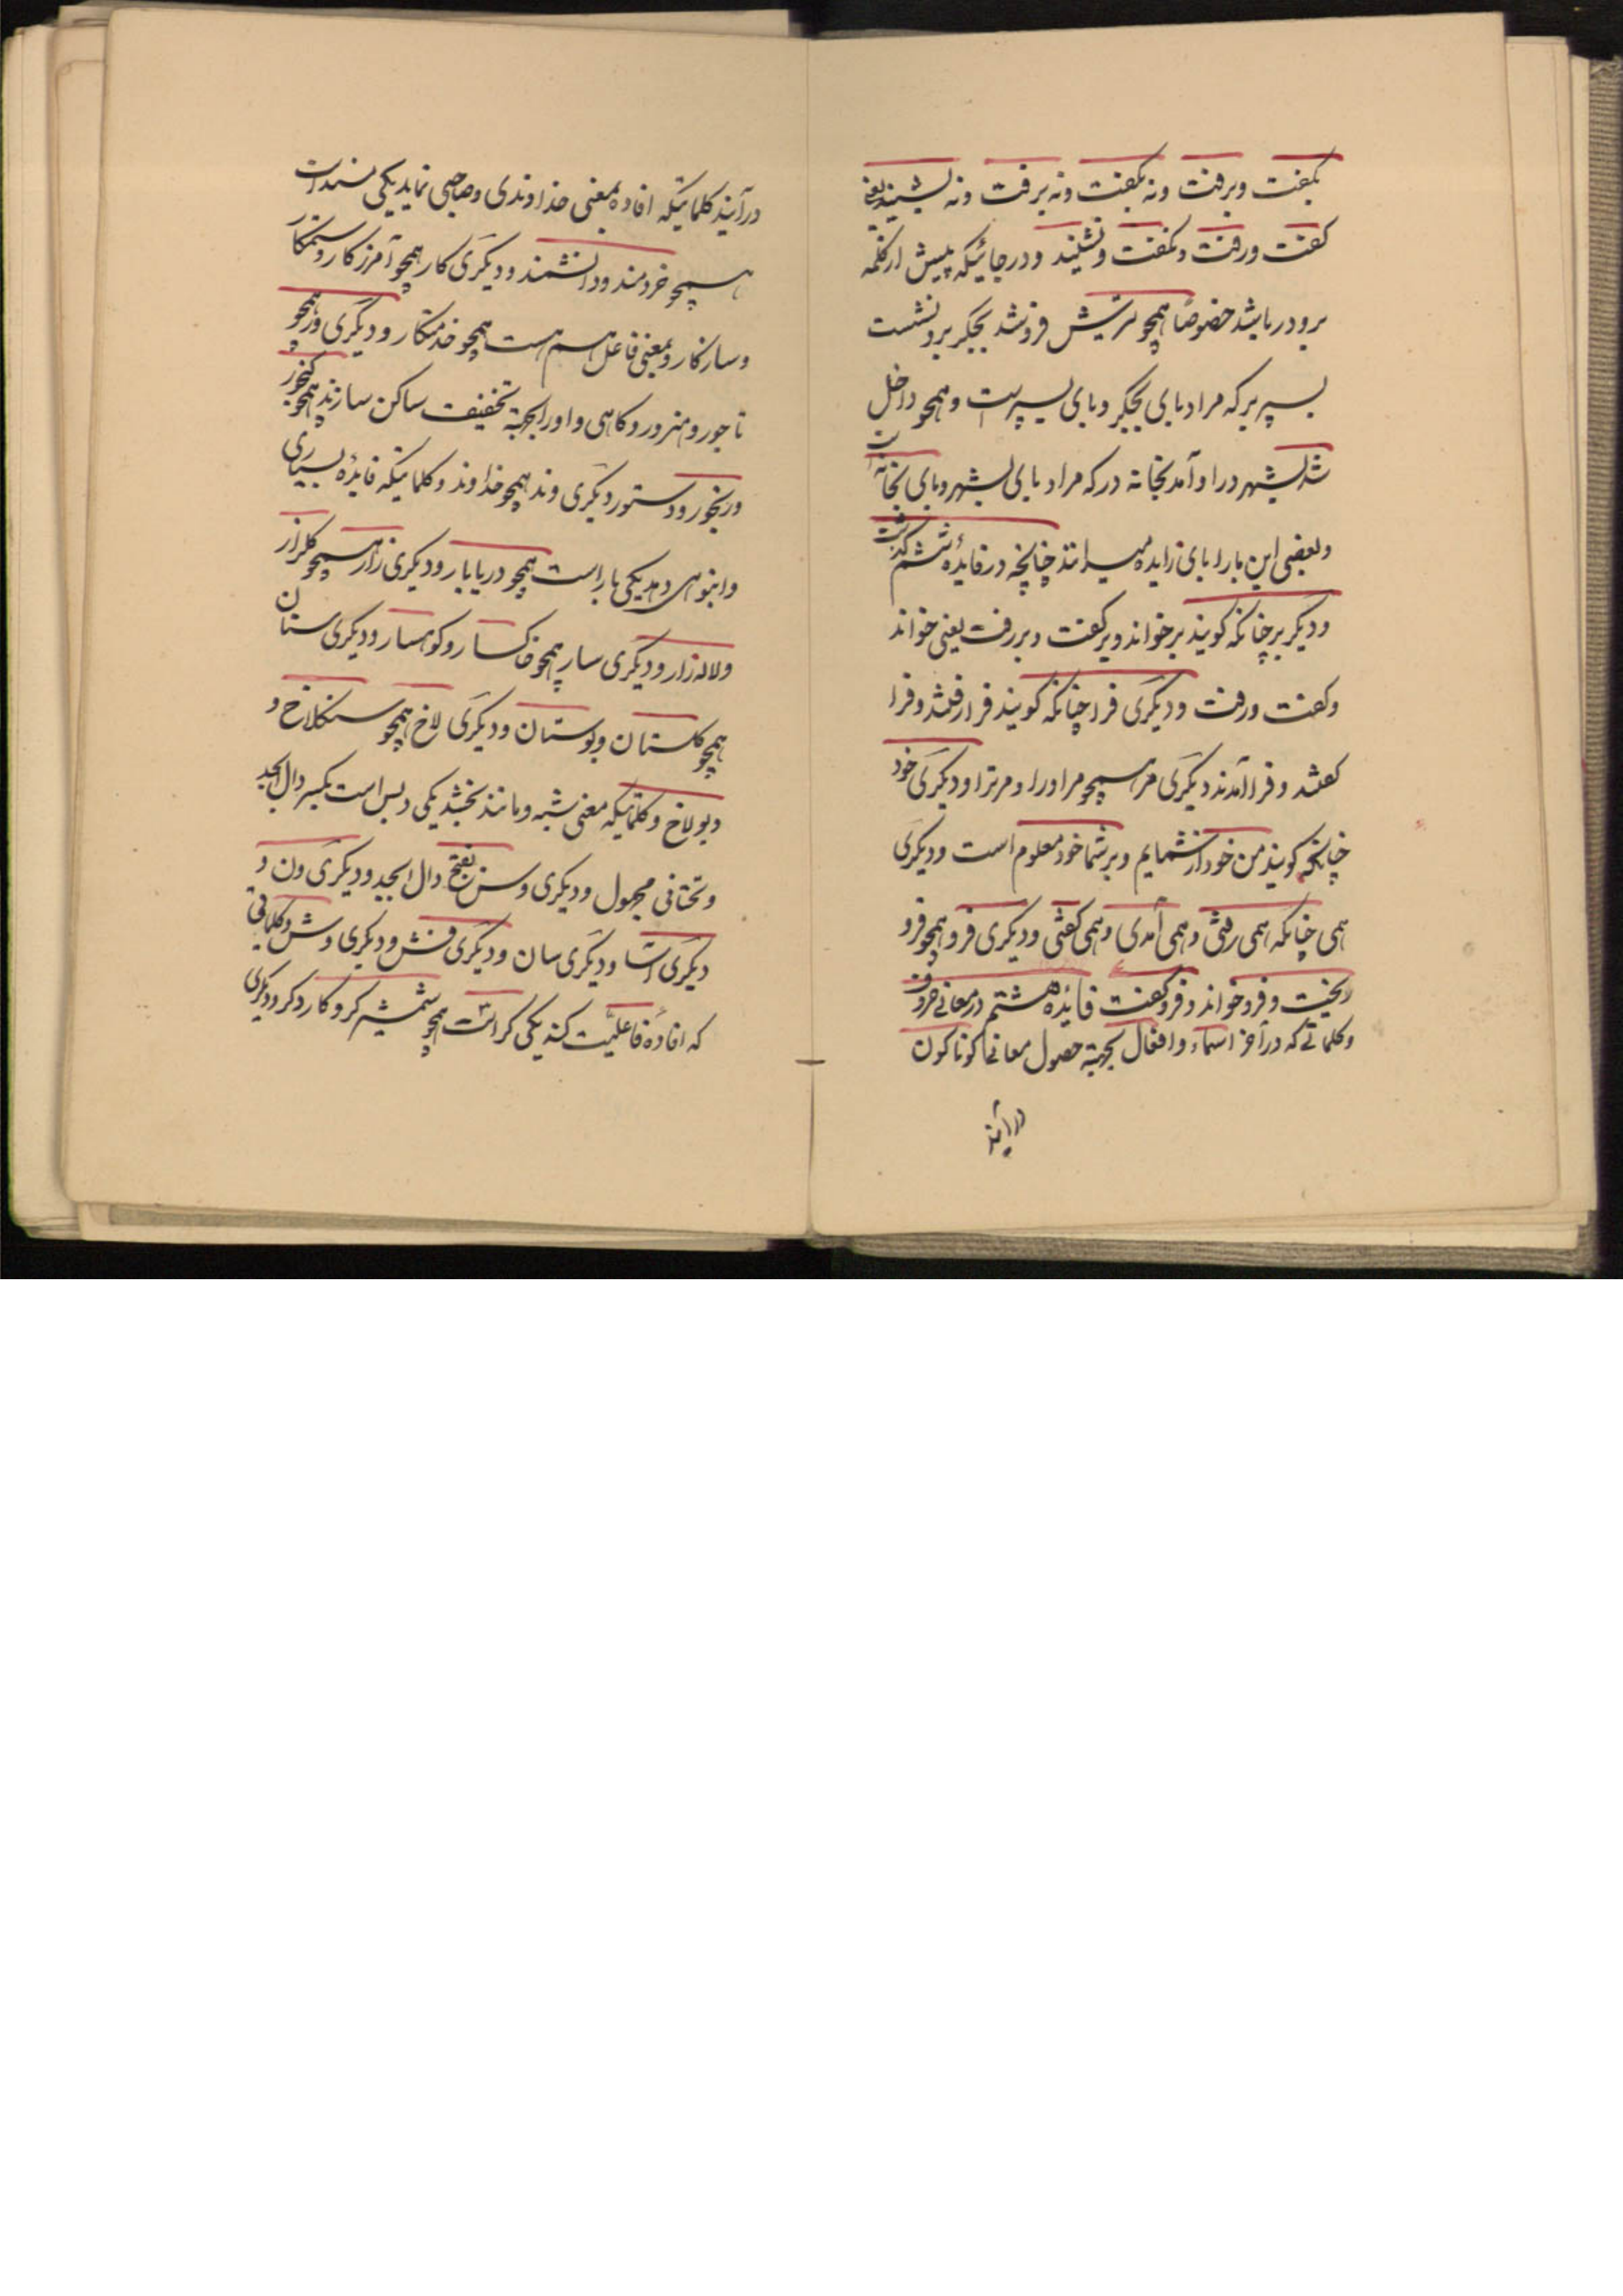 بکفت وبرفت ونه بکفت ونه برفت ونه بشنید یعنی
کفت ورفت ونکفت ونشنید ودر جائیکه پیش از کلمه
بر ودر باشد خصوصا همچو تیرش فروشد بجکر بر ونشست
بسپر بر که مراد بای بجکر وبای بسپر است وهمچو داخل
شد بشهر در او آمد بخانه در که مراد بای بشهر وبای بخانه است
وبعضی این با را بای زایده میدانند چنانچه در فایدهٔ ششم کذشت
ودیکر بر چنانکه کویند بر خواند وبر کفت وبر رفت یعنی خواند
وکفت ورفت ودیکری فرا چنانکه کویند فرا رفتند وفرا
کفتند وفرا آمدند دیکری مر همچو مر اورا ومر ترا ودیکری خود
چنانکه کویند من خود از شمایم وبر شما خود معلوم است ودیکری
همی چنانکه همی رفتی وهمی آمدی وهمی کفتی ودیکری فرو همچو فرو
ریخت وفرو خواند وفرو کفت فائدهٔ هشتم در معانی حروف
وکلماتی که در آخر اسماء وافعال بجهة حصول معانی کوناکون
درآیند
درآیند کلماتیکه افادهٔ معنی خداوندی وصاحبی نماید یکی مند است
همچو خردمند ودانشمند ودیکری کار همچو آمرزکار وستمکار
وسازکار وبمعنی فاعل هم هست همچو خدمتکار ودیکری ور همچو
تاجور وهنرور وکاهی واو را بجهة تخفیف ساکن سازند همچو کنجور
ورنجور ودستور دیکری وند همچو خداوند وکلماتیکه فایدهٔ بسیاری
وانبوهی دهد یکی بار است همچو دریابار ودیکری زار همچو کلزار
ولاله زار ودیکری سار همچو خاکسار وکوهسار ودیکری ستان
همچو کلستان وبوستان ودیکری لاخ همچو سنکلاخ و
دیولاخ وکلماتیکه معنی شبه ومانند بخشد یکی دیس است بکسر دال ابجد
وتحتانی مجهول ودیکری دس بفتح دال ابجد ودیکری ون و
دیکری آسا ودیکری سان ودیکری فش ودیکری وش وکلماتی
که افادهٔ فاعلیت کند یکی کر است همچو شمشیر کر وکارد کر ودیکری